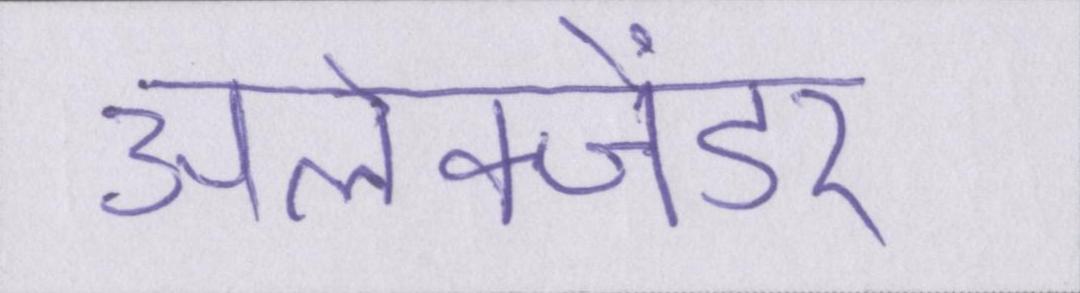 अलेक्जेंडर